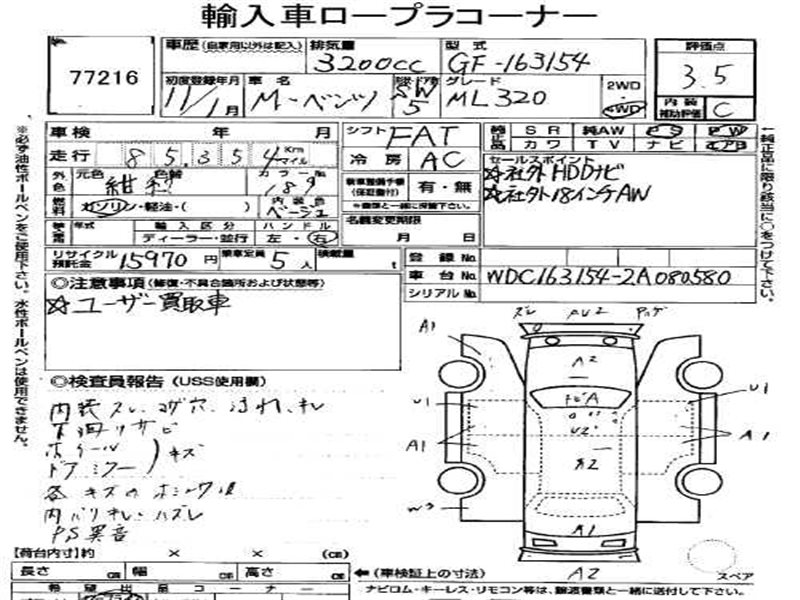 輸入車ロープラコーナー
77216
車歴 (自家用以外は記入)
排気量
3200cc
型式
GF-163154
評価点
3.5
初度登録年月
11/1月
車名
M-ベンツ
型状・ドア数
SW
5
グレード
ML320
2WD
4WD
内装補助評価
C
車検 年 月
シフト
FAT
純正品
SR 純AW PS PW
カワ TV ナビ エアB
走行 85,354 Km マイル
冷房
AC
セールスポイント
☆社外HDDナビ
☆社外18インチAW
外色
元色
紺
色替
カラーNo
189
車検整備手帳(保証書付)
有・無
※書類と一緒に保管下さい。
燃料
ガソリン・軽油・( )
内装色
ベージュ
名義変更期限
月 日
年式
輸入区分
ディーラー・並行
ハンドル
左・右
リサイクル預託金
15970円
乗車定員
5人
積載量
t
登録No.
車台No.
WDC163154-2A080580
シリアルNo.
◎注意事項(修復・不具合箇所および状態等)
☆ユーザー買取車
◎検査員報告(USS使用欄)
内装スレ、コゲ穴、汚れ、キレ
下廻りサビ
ホイール
ドアミラー
キズ
内バリキレ、ハズレ
PS異音
A1
A2
U1
U2
A2
U1
A1
A1
W3
A1
A2
スペア
【荷台内寸】約 × × (cm)
長さ cm 幅 cm 高さ cm
←(車検証上の寸法)
希望出品コーナー
ナビロム・キーレス・リモコン等は、譲渡書類と一緒に送付して下さい。
※必ず油性ボールペンをご使用下さい。水性ボールペンは使用できません。
←純正品に限り該当に○をつけて下さい。